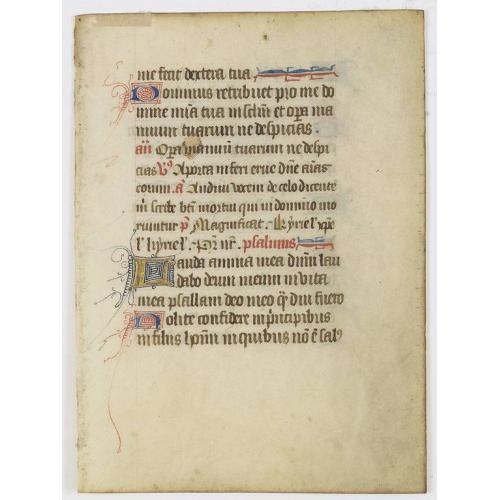 me fecit dextera tua
Dominus retribuet pro me do
mine mia tua in sclm et opa ma
nuum tuarum ne despicias.
an Opa manuu tuarum ne despi
cias V9 A porta inferi erue dne aias
eorum. a Audivi vocem de celo dicente
m scribe bti mortui qui in domino mo
riuntur p Magnificat. kyriel xpel
l kyriel. Pr nr. psalmus
Lauda anima mea dnm lau
dabo deum meum in vita
mea psallam deo meo q diu fuero
Nolite confidere in pncipibus
in filiis homi in quibus no e sal9